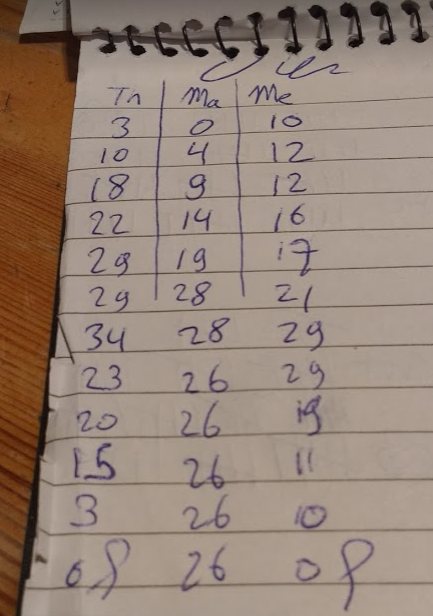 Tn Ma Me
3 0 10
10 4 12
18 9 12
22 14 16
29 19 17
29 28 21
34 28 29
23 26 29
20 26 19
15 26 11
3 26 10
0 26 0